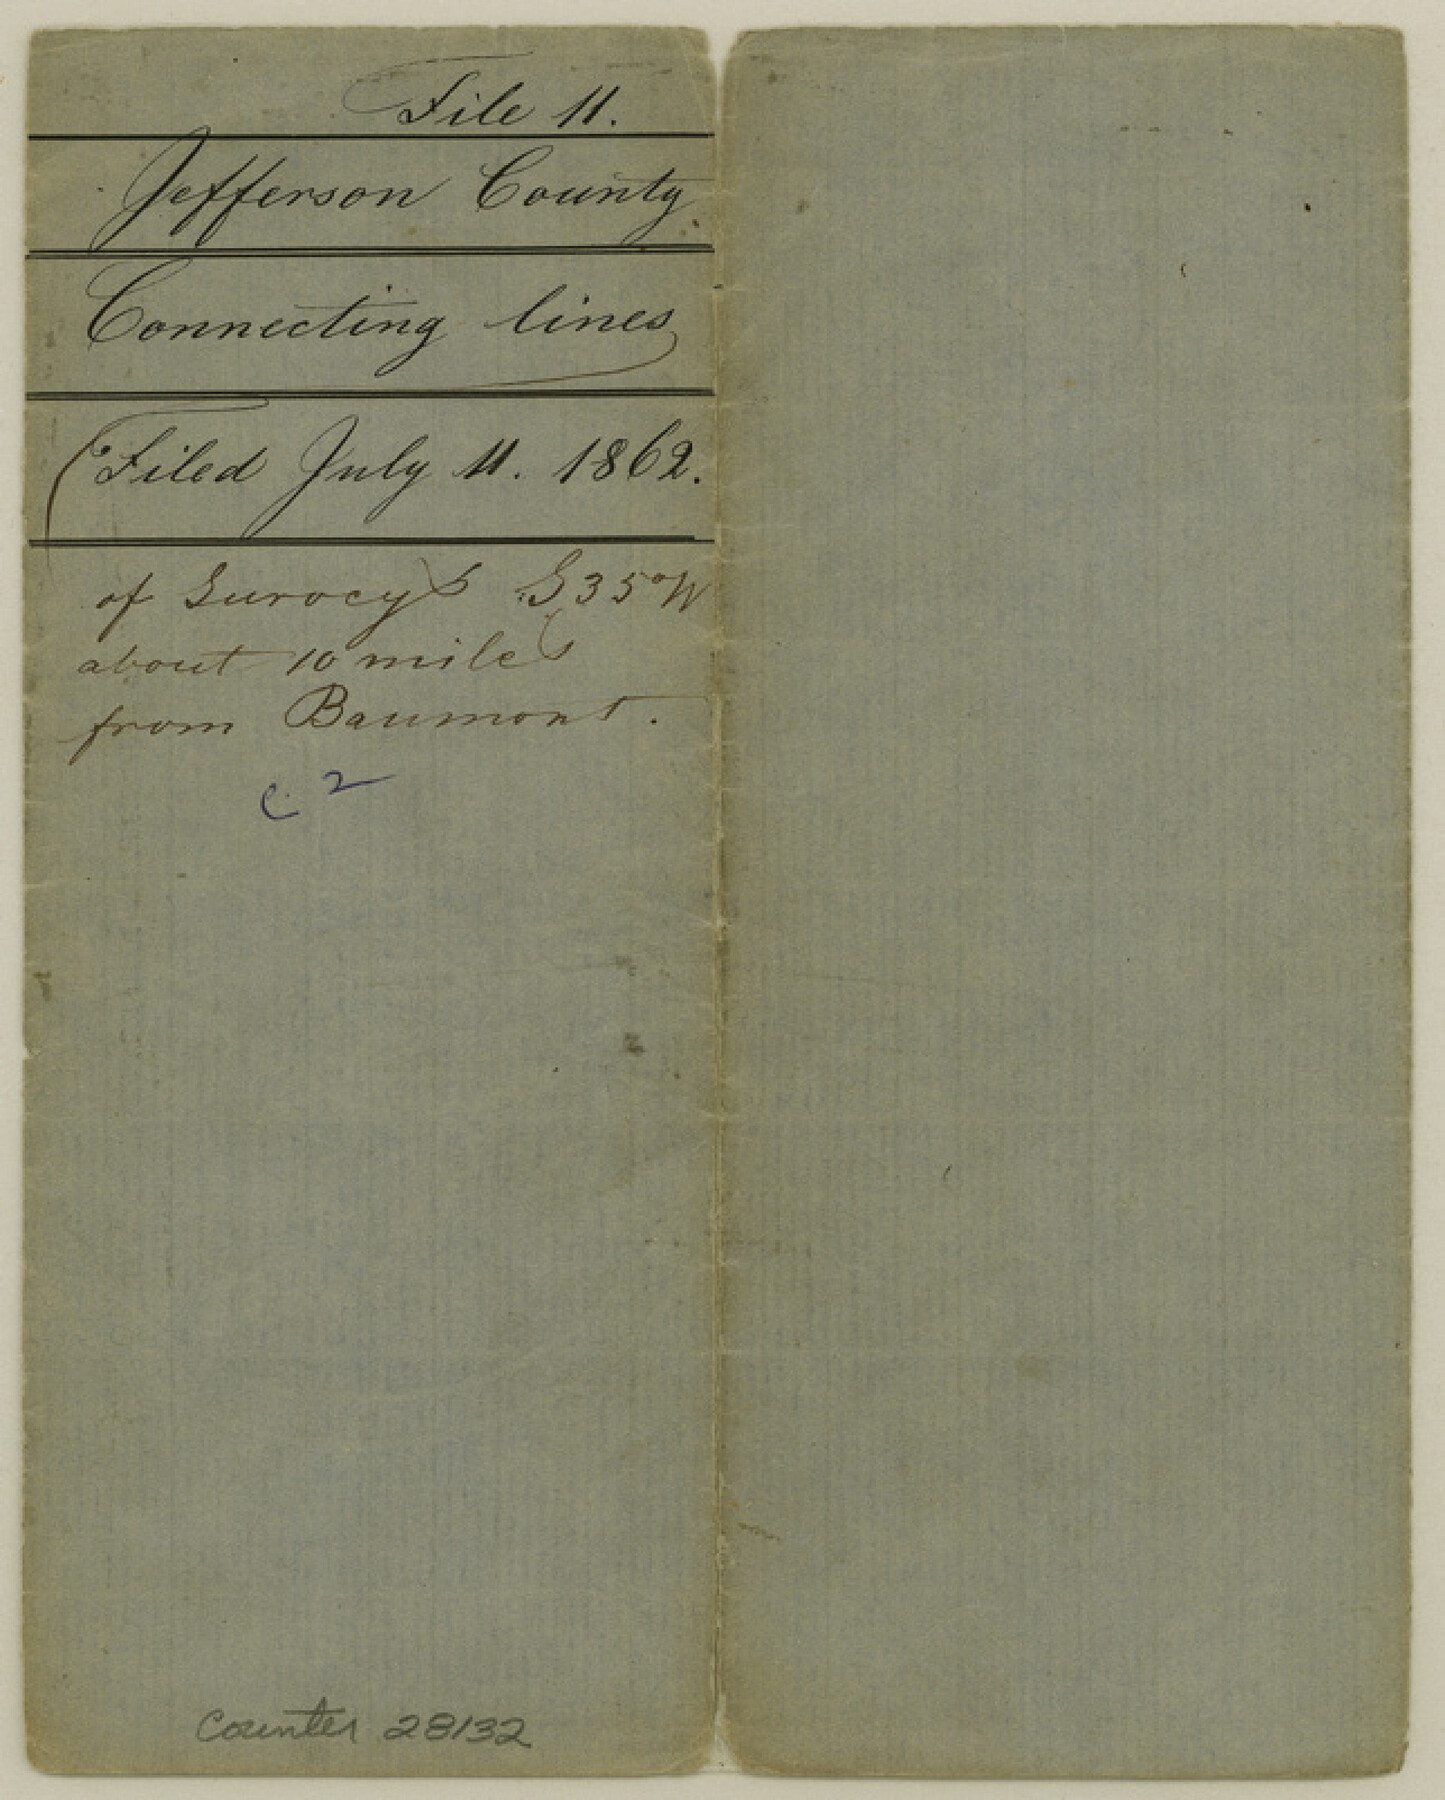 File 11.
Jefferson County
Connecting lines
Filed July 11. 1862.
of Surveys S35°W
about 10 miles
from Baumont.
C. 2
Counter 28132